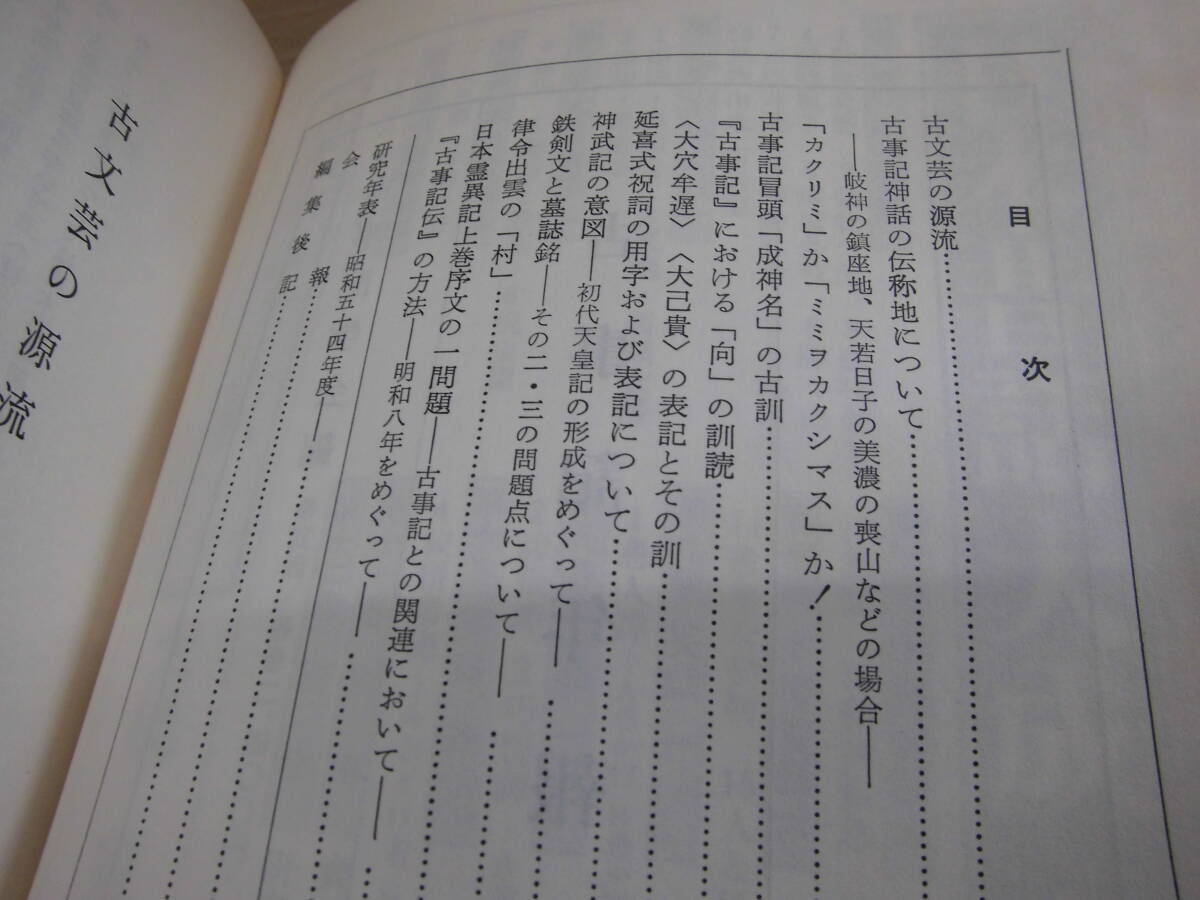 目次
古文芸の源流
古事記神話の伝称地について
――岐神の鎮座地、天若日子の美濃の喪山などの場合――
「カクリミ」か「ミミヲカクシマス」か！
古事記冒頭「成神名」の古訓
『古事記』における「向」の訓読
〈大穴牟遅〉〈大己貴〉の表記とその訓
延喜式祝詞の用字および表記について
神武記の意図――初代天皇記の形成をめぐって――
鉄剣文と墓誌銘――その二・三の問題点について――
律令出雲の「村」
日本霊異記上巻序文の一問題――古事記との関連において――
『古事記伝』の方法――明和八年をめぐって――
研究年表――昭和五十四年度――
会報
編集後記
古文芸の源流